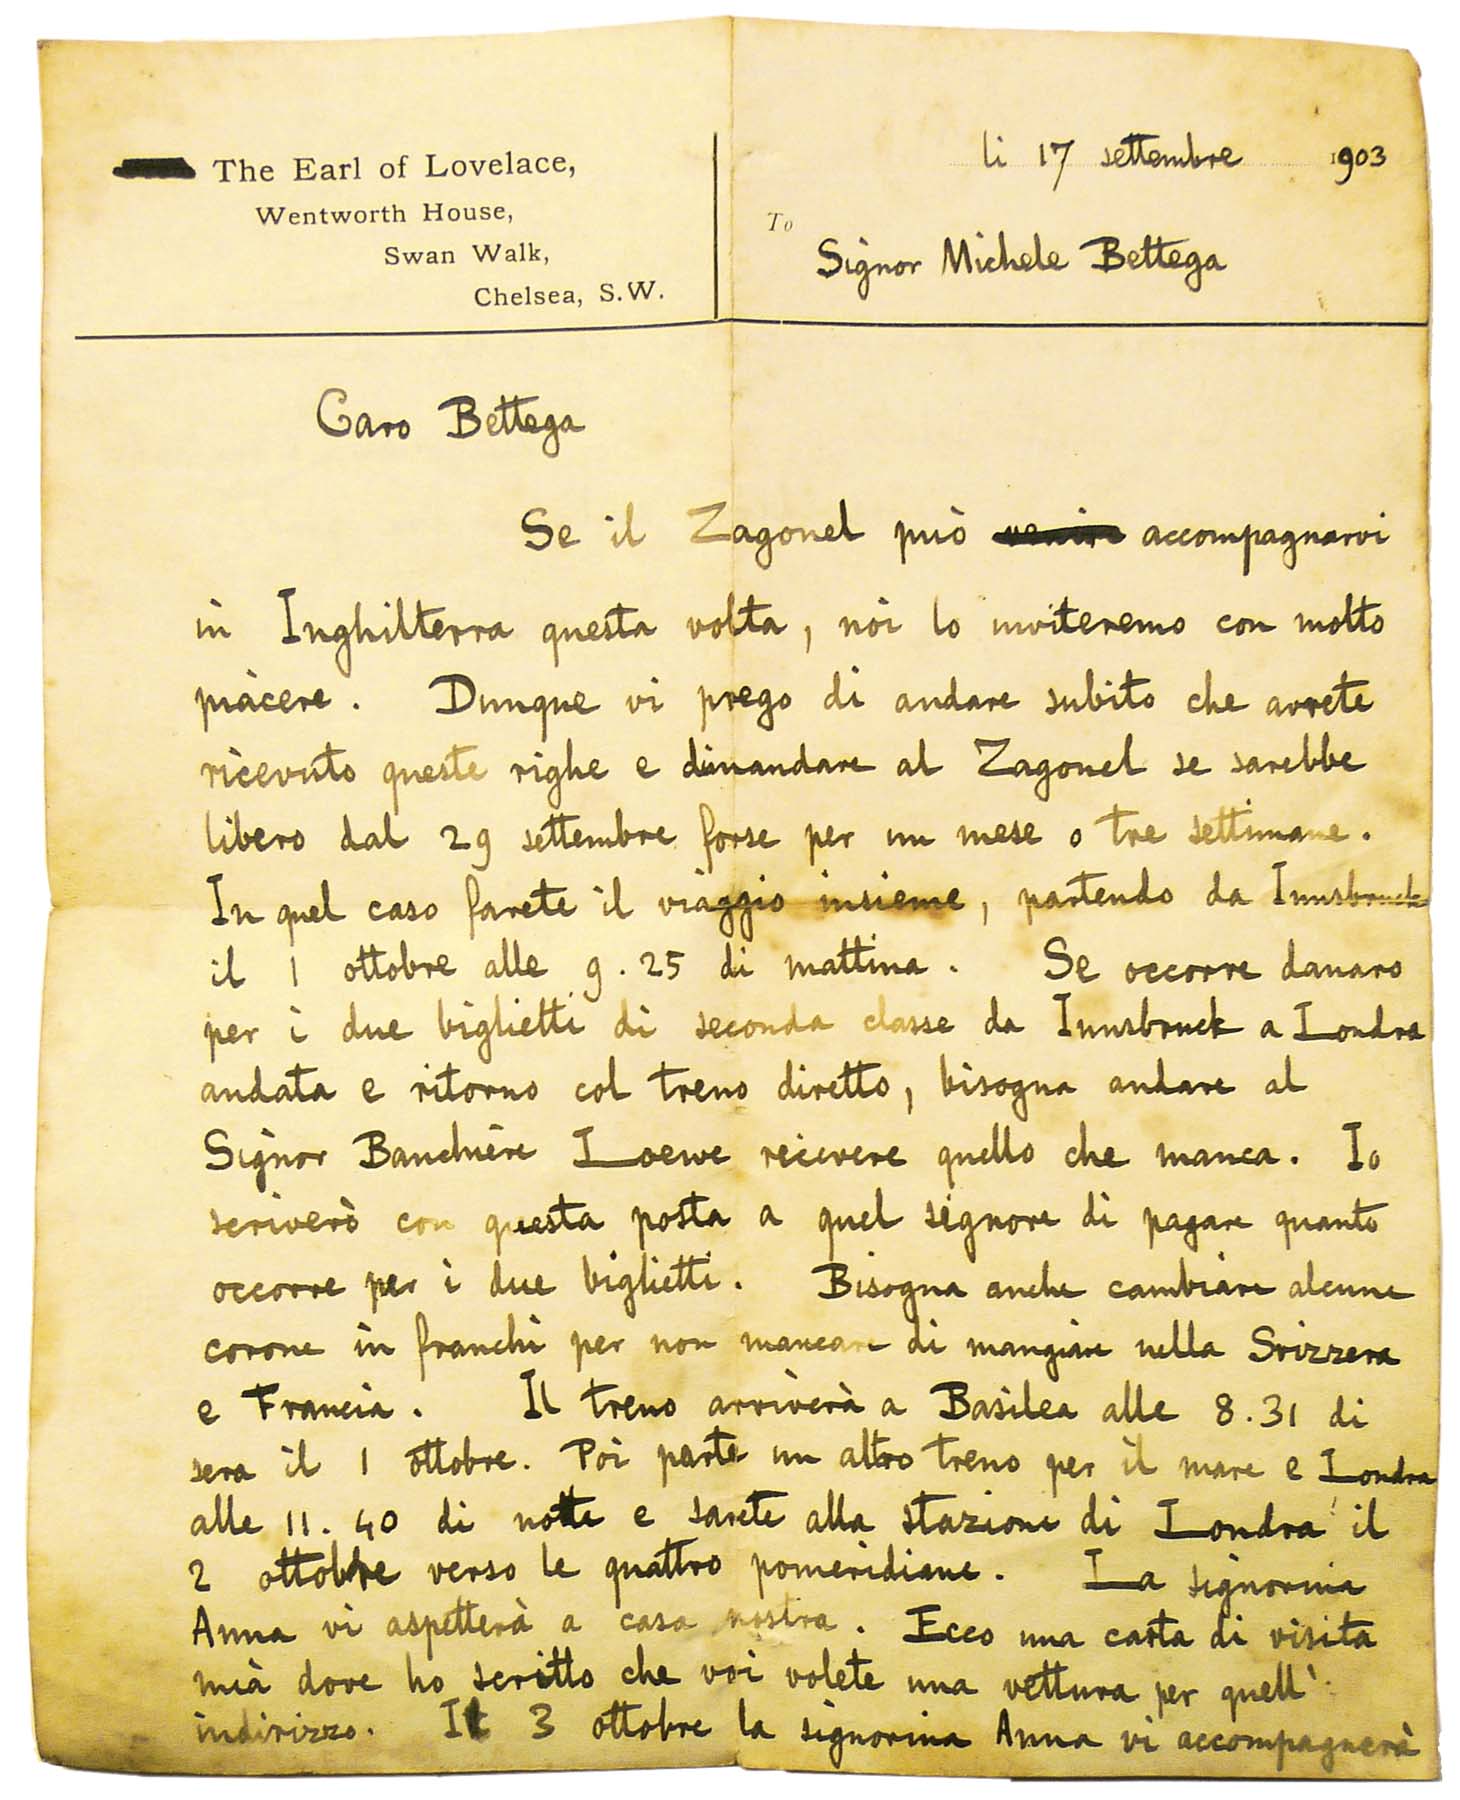 The Earl of Lovelace,
Wentworth House,
Swan Walk,
Chelsea, S.W.
li 17 settembre 1903
To
Signor Michele Bettega
Caro Bettega
Se il Zagonel può venire accompagnarvi
in Inghilterra questa volta, noi lo inviteremo con molto
piàcere. Dunque vi prego di andare subito che avrete
ricevuto queste righe e dimandare al Zagonel se sarebbe
libero dal 29 settembre forse per un mese o tre settimane.
In quel caso farete il viaggio insieme, partendo da Innsbruck
il 1 ottobre alle 9.25 di mattina. Se occorre danaro
per i due biglietti di seconda classe da Innsbruck a Londra
andata e ritorno col treno diretto, bisogna andare al
Signor Banchiere Loewe recevere quello che manca. Io
scriverò con questa posta a quel signore di pagare quanto
occorre per i due biglietti. Bisogna anche cambiare alcune
corone in franchi per non mancare di mangiare nella Svizzera
e Francia. Il treno arriverà a Basilea alle 8.31 di
sera il 1 ottobre. Poi parte un altro treno per il mare e Londra
alle 11.40 di notte e sarete alla stazione di Londra il
2 ottobre verso le quattro pomeridiane. La signorina
Anna vi aspetterà a casa nostra. Ecco una carta di visita
mià dove ho scritto che voi volete una vettura per quell'
indirizzo. Il 3 ottobre la signorina Anna vi accompagnerà